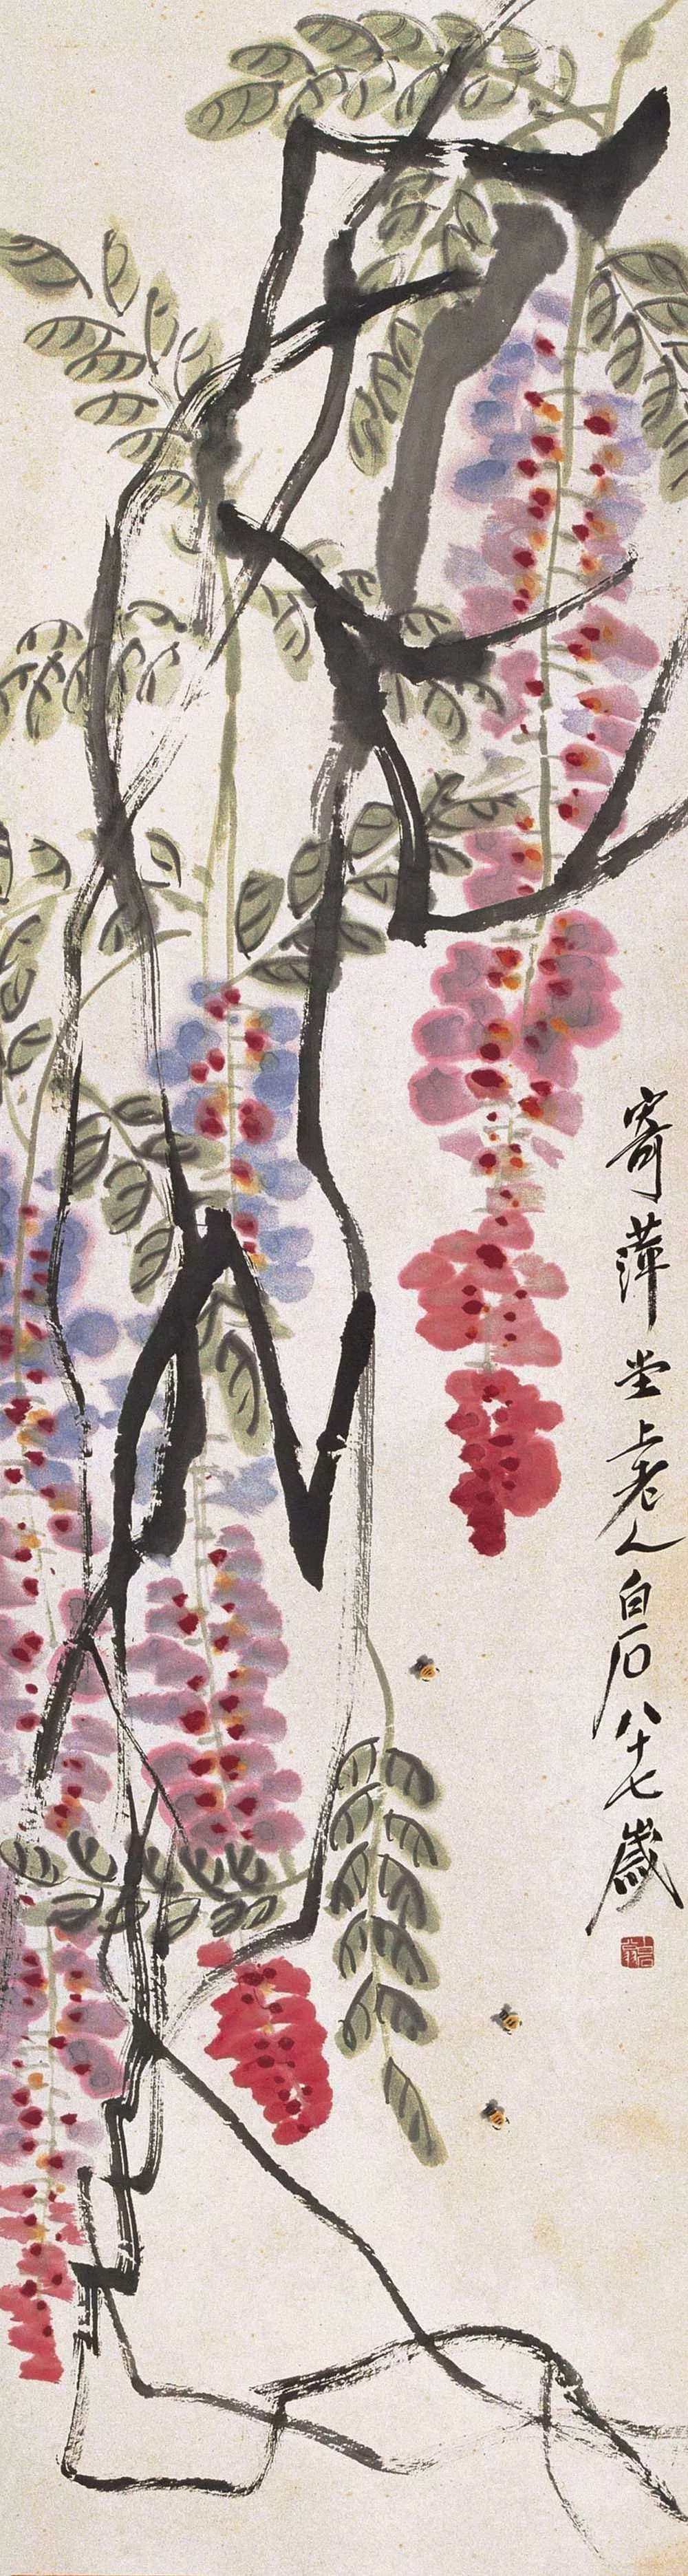 寄萍堂上老人白石八十七歲